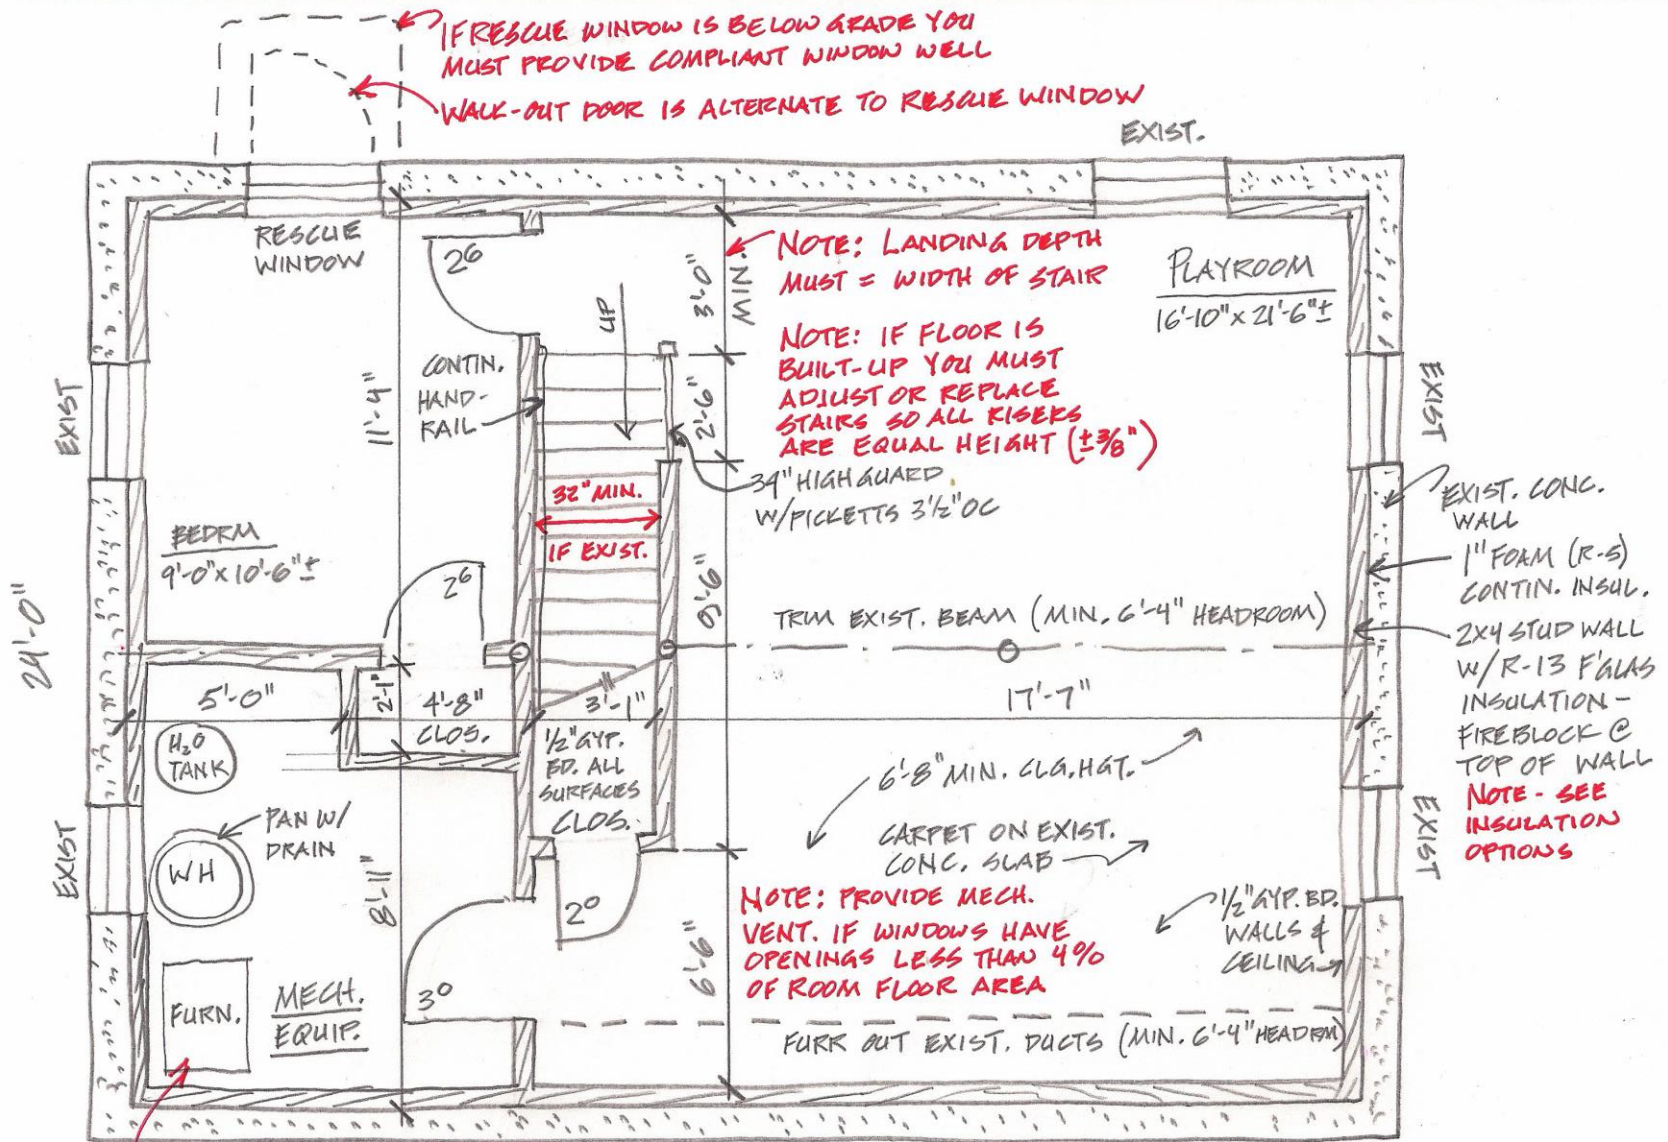 IF RESCUE WINDOW IS BELOW GRADE YOU
MUST PROVIDE COMPLIANT WINDOW WELL
WALK-OUT DOOR IS ALTERNATE TO RESCUE WINDOW
EXIST.
RESCUE
WINDOW
26
UP
3'-0"
MIN.
NOTE: LANDING DEPTH
MUST = WIDTH OF STAIR
PLAYROOM
16'-10" x 21'-6"±
NOTE: IF FLOOR IS
BUILT-UP YOU MUST
ADJUST OR REPLACE
STAIRS SO ALL RISERS
ARE EQUAL HEIGHT (±3/8")
EXIST
11'-4"
CONTIN.
HAND-
RAIL
2'-6"
EXIST
34" HIGH GUARD
W/PICKETTS 3½" OC
32" MIN.
IF EXIST.
EXIST. CONC.
WALL
1" FOAM (R-5)
CONTIN. INSUL.
2X4 STUD WALL
W/R-13 F'GLAS
INSULATION-
FIREBLOCK @
TOP OF WALL
NOTE - SEE
INSULATION
OPTIONS
BEDRM
9'-0" x 10'-6"±
26
24'-0"
TRIM EXIST. BEAM (MIN. 6'-4" HEADROOM)
5'-0"
2'-1"
4'-8"
CLOS.
3'-1"
17'-7"
H2O
TANK
½" GYP.
BD. ALL
SURFACES
CLOS.
6'-8" MIN. CLG. HGT.
CARPET ON EXIST.
CONC. SLAB
EXIST
PAN W/
DRAIN
WH
8'-11"
20
NOTE: PROVIDE MECH.
VENT. IF WINDOWS HAVE
OPENINGS LESS THAN 4%
OF ROOM FLOOR AREA
EXIST
½" GYP. BD.
WALLS &
CEILING
6'-6"
30
FURN.
MECH.
EQUIP.
FURR OUT EXIST. DUCTS (MIN. 6'-4" HEADRM)